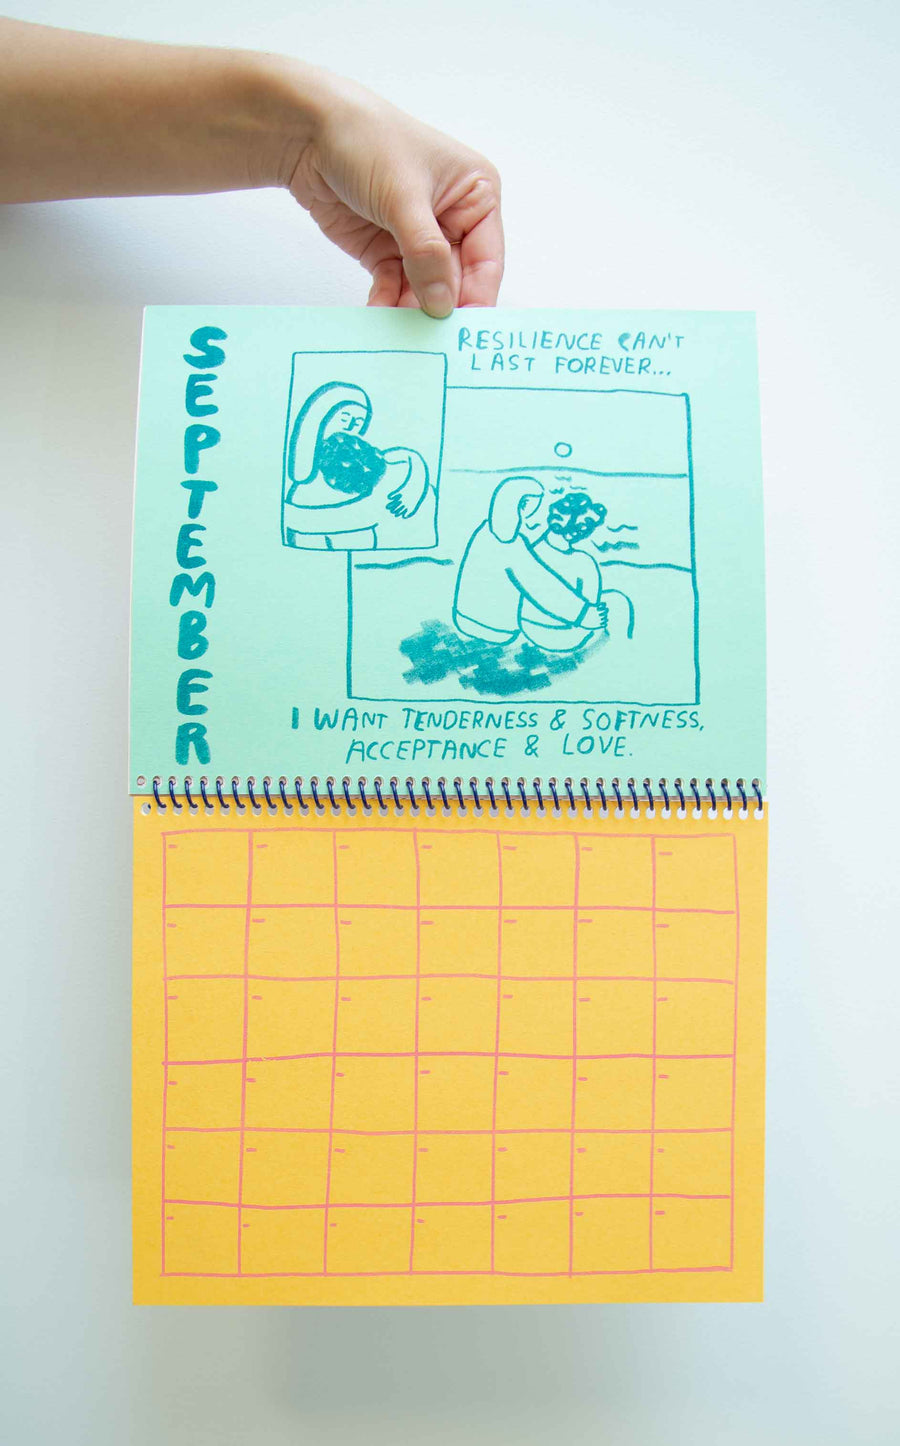 SEPTEMBER
RESILIENCE CAN'T
LAST FOREVER...
I WANT TENDERNESS & SOFTNESS,
ACCEPTANCE & LOVE.